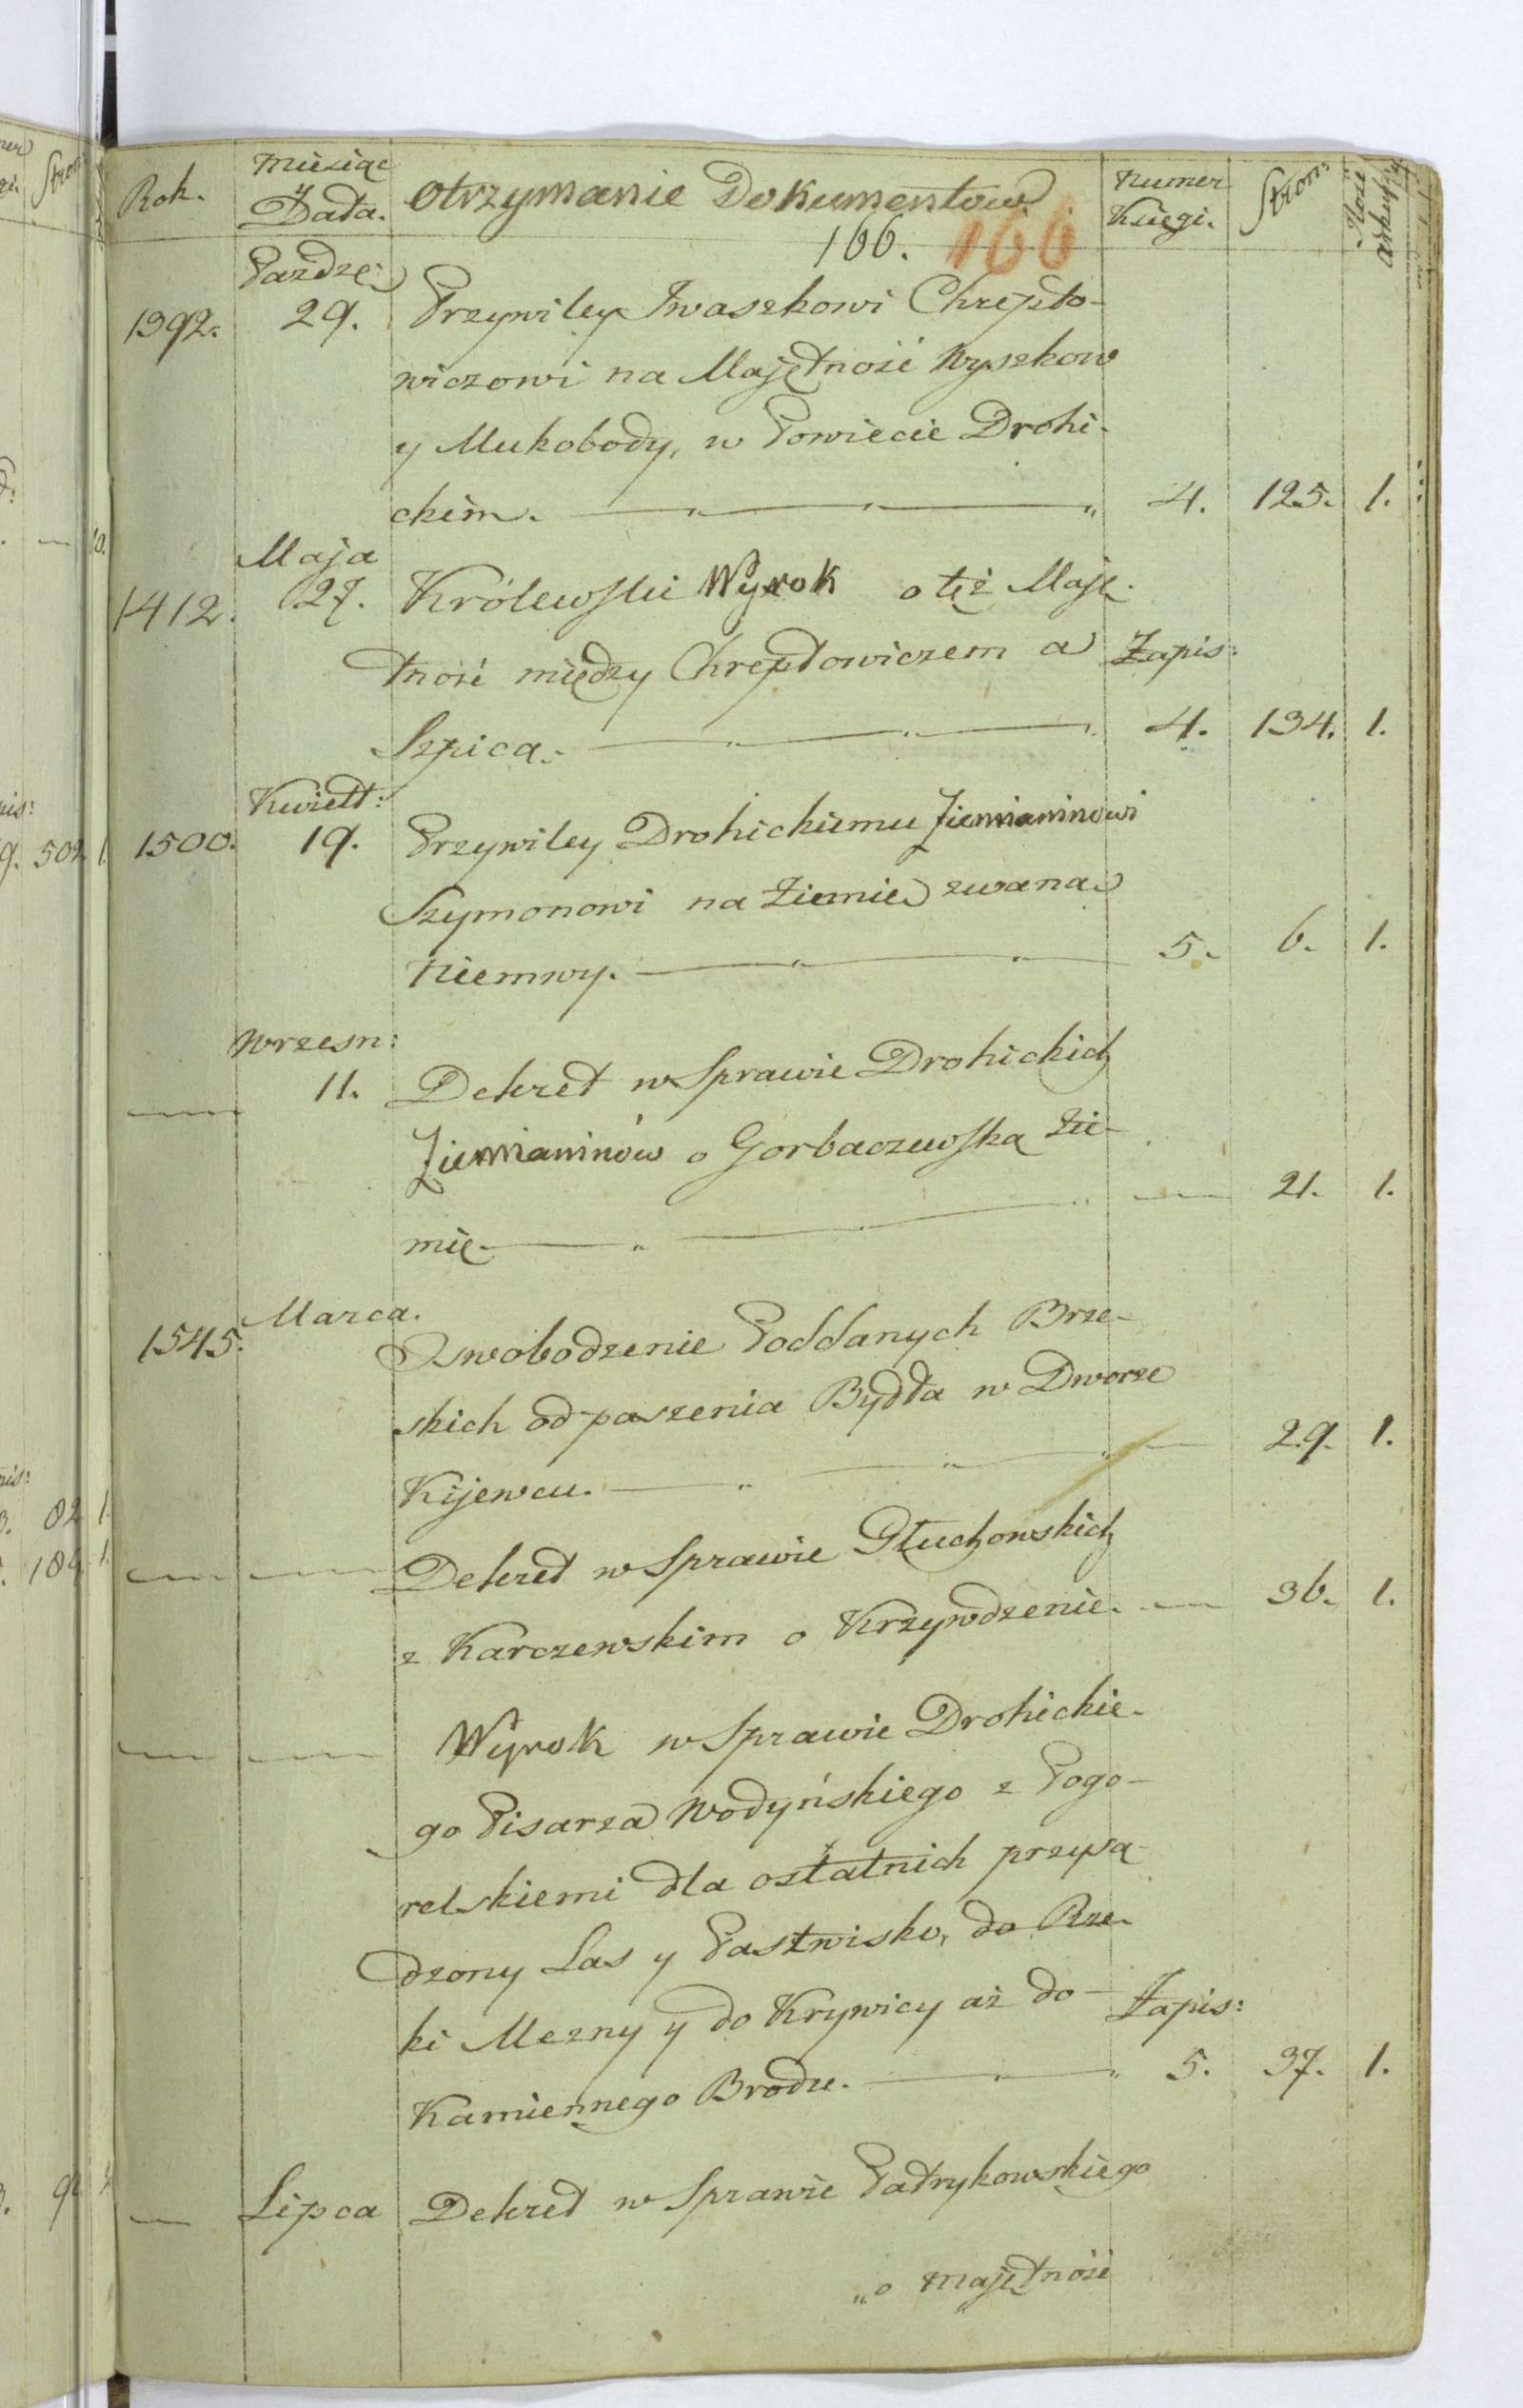 Rok. Miesiąc y Data. Otrzymanie Dokumentow Numer Księgi. Stron:
166. 166
Pazdze:
1392. 29. Przywiley Iwaszkowi Chrepto-
wiczowi na Majętność Wyszkow
y Mukobody, w Powiecie Drohi-
ckim. 4. 125. 1.
Maja
1412. 27. Królewski Wyrok o też Maję-
tność między Chreptowiczem a Zapis:
Szpica. 4. 134. 1.
Kwiet:
1500. 19. Przywiley Drohickiemu Ziemianinowi
Szymonowi na Ziemie zwana
Niemwy. 5. 6. 1.
Wrzesn:
— 11. Dekret w Sprawie Drohickich
Ziemianinów o Gorbaczewska Zie-
mię. — 21. 1.
1545. Marca. Oswobodzenie Poddanych Brze-
skich od paszenia Bydła w Dworze
Kijewcu. — 29. 1.
— — Dekret w Sprawie Głuchowskich
z Karczewskim o Krzywdzenie. — 36. 1.
— — Wyrok w Sprawie Drohickie-
go Pisarza Wodyńskiego z Pogo-
relskiemi dla ostatnich przysą-
dzony Las y Pastwisko, do Rze-
ki Mezny y do Krywicy aż do Zapis:
Kamiennego Brodu. 5. 37. 1.
— Lipca Dekret w Sprawie Patrykowskiego
„o majętność